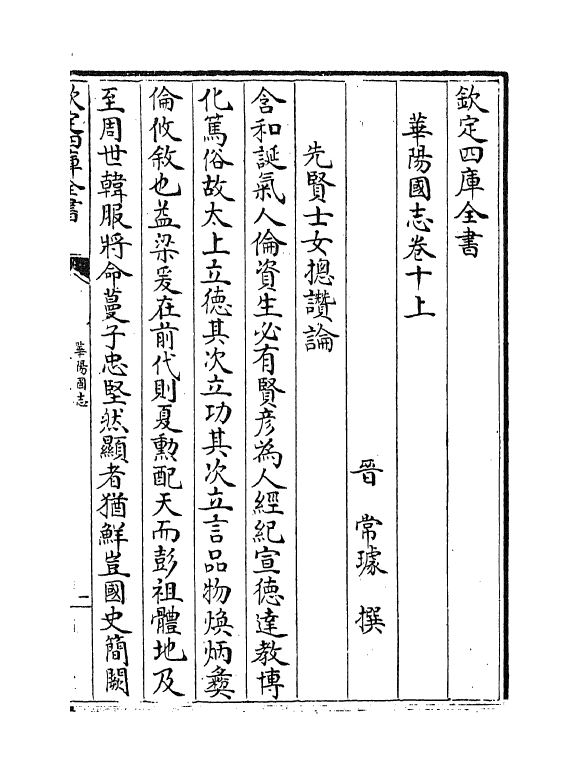 欽定四庫全書
華陽國志卷十上
晉 常璩 撰
先賢士女揔讚論
含和誕氣人倫資生必有賢彦為人經紀宣徳達教博
化篤俗故太上立徳其次立功其次立言品物煥炳彜
倫攸敘也益梁爰在前代則夏勲配天而彭祖體地及
至周世韓服將命蔓子忠堅然顯者猶鮮豈國史簡闕
欽定四庫全書
華陽國志